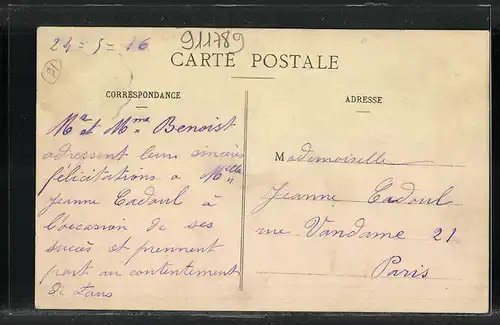 24 = 5 = 16
911789
91
CARTE POSTALE
CORRESPONDANCE
ADRESSE
Mr et Mme Benoist
adressent leurs sincères
félicitations a Melle
Jeanne Cadoul à
l'occasion de ses
succès et prennent
part au contentement
de tous
Mademoiselle
Jeanne Cadoul
rue Vandame 21
Paris